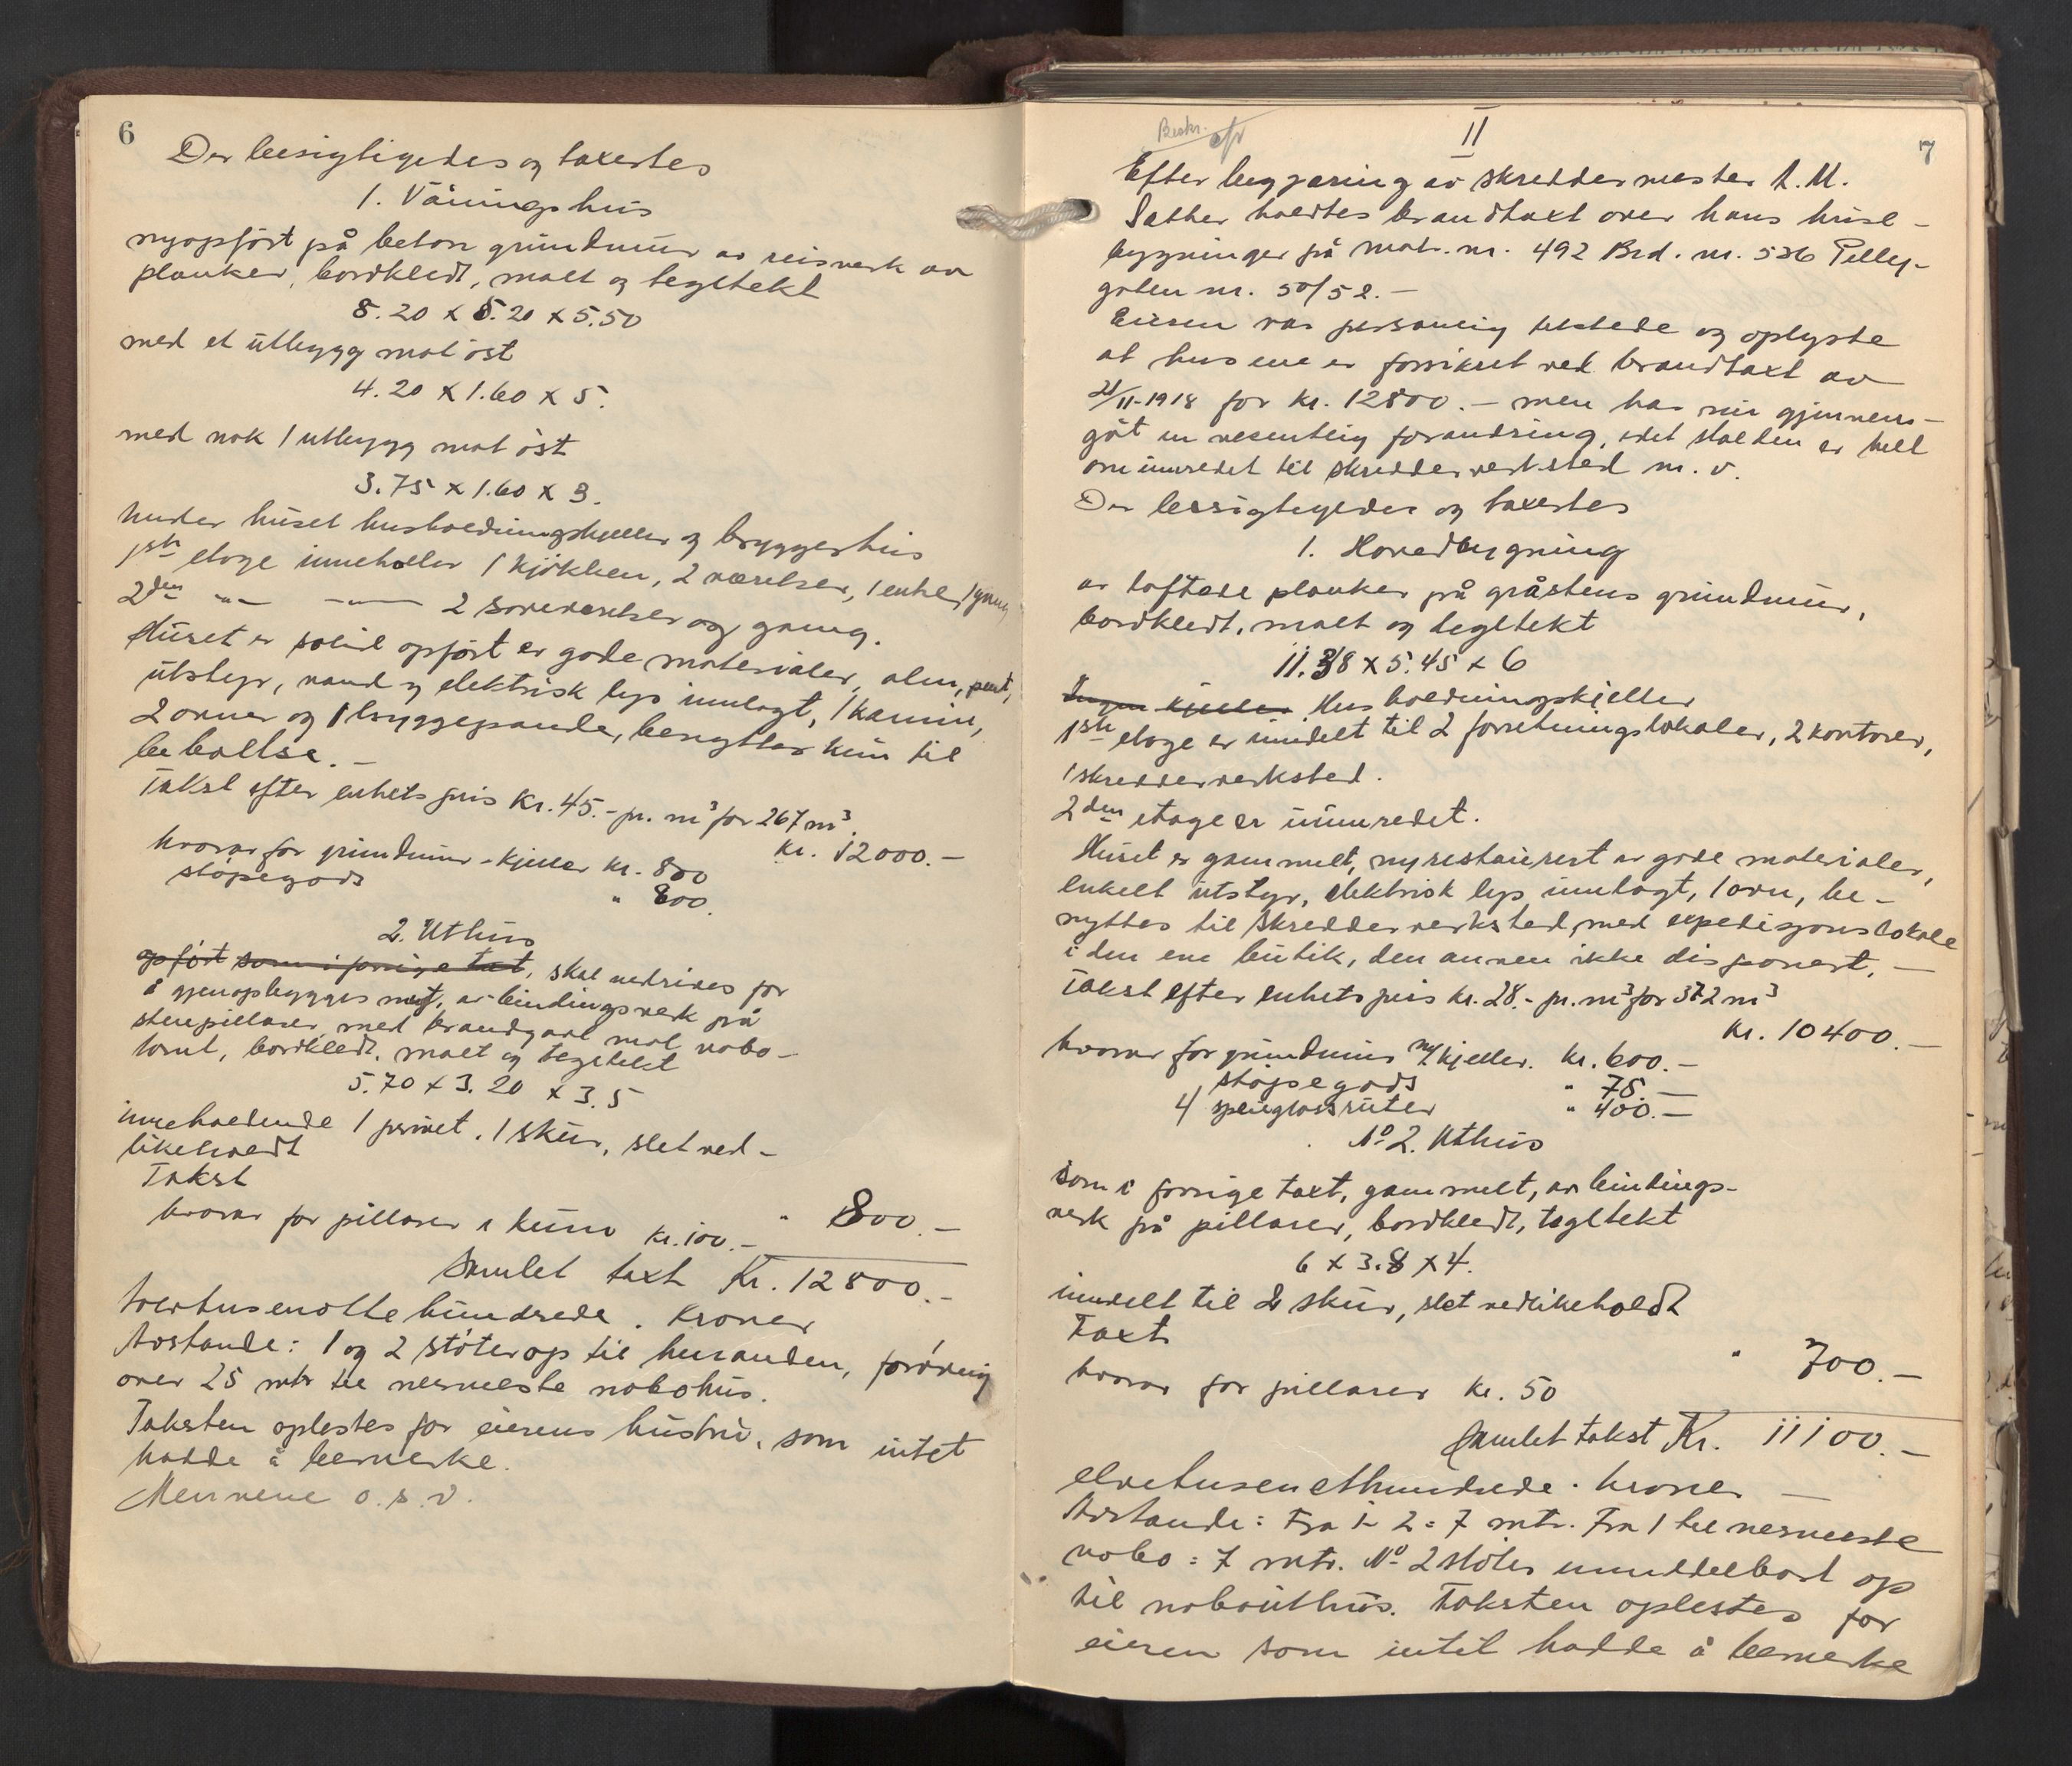 6
Der besigtigedes og taxertes
1. Våningshus
nyopført på beton grundmur av reisverk av
planker, bordkledt, malt og tegltekt
8.20 x 8.20 x 5.50
med et utbygg mot öst
4.20 x 1.60 x 5.
med nok 1 utbygg mot öst
3.75 x 1.60 x 3.
Under huset husholdningskjeller og bryggerhus
1ste etage inneholder 1 kjökken, 2 værelser, 1 entre, 1 gang
2den -"- -"- 2 soveværelser og gang.
Huset er solid opført av gode materialer, alm, pent,
utstyr, vand og elektrisk lys innlagt, 1 kamin,
2 ovner og 1 bryggepande, benyttes kun til
beboelse. -
Takst efter enhetspris kr. 45.- pr. m³ for 267 m³.
kr. 12000.-
hvorav for grundmur - kjeller kr. 800
støpegods " 800.
2. Uthus
opført som i forrige taxt, skal nedrives for
å gjenopbygges nytt, av bindingsverk på
stenpillarer med brandgavl mot nabo-
tomt, bordkledt, malt og tegltekt
5.70 x 3.20 x 3.5
inneholdende 1 privet, 1 skur, slet ved-
likeholdt
Takst
" 800.-
hvorav for pillarer & kum kr. 100.-
Samlet taxt Kr. 12800.-
tolvtusenottehundrede. Kroner
Avstande: 1 og 2 støter op til hinanden, forövrig
over 25 mtr til nermeste nabohus.
Taksten oplestes for eierens hustru, som intet
hadde å bemerke.
Mennene o.s.v.
7
Beskr.
II
Efter begjæring av skreddermester A. M.
Sæther holdtes brandtaxt over hans huse-
bygninger på Matr. nr. 492 Brd. nr. 536 Teller-
gaten nr. 50/52.-
Eieren var personlig tilstede og oplyste
at husene er forsikret ved brandtaxt av
21/11-1918 for kr. 12800.- men har nu gjennem-
gåt en vesentlig forandring, idet stalden er helt
ominnredet til skredderverksted m. v.
Der besigtigedes og taxertes
1. Hovedbygning
av laftede planker på gråstens grundmur,
bordkledt, malt og tegltekt
11.38 x 5.45 x 6
Ingen kjeller Husholdningskjeller
1ste etage er inndelt til 2 forretningslokaler, 2 kontorer,
1 skredderverksted.
2den etage er uinnredet.
Huset er gammelt, nyrestaurert av gode materialer,
enkelt utstyr, elektrisk lys innlagt, 1 ovn, be-
nyttes til skredderverksted, med expedisjonslokale
i den ene butik, den annen ikke disponert. -
Takst efter enhetspris kr. 28.- pr. m³ for 372 m³
Kr. 10400.-
hvorav for grundmur m/kjeller. kr. 600.-
støpegods " 75.-
4 speilglassruter " 400.-
No 2. Uthus
Som i forrige taxt, gammelt, av bindings-
verk på pillarer, bordkledt, tegltekt
6 x 3.8 x 4.
inndelt til 2 skur, slet vedlikeholdt
Taxt
" 700.-
hvorav for pillarer kr. 50
Samlet takst Kr. 11100.-
elvetusenethundrede. kroner -
Avstande: Fra 1 - 2 = 7 mtr. Fra 1 til nermeste
nabo = 7 mtr. No 2 støter umiddelbart op
til nabouthus. Taksten oplestes for
eieren som intet hadde å bemerke